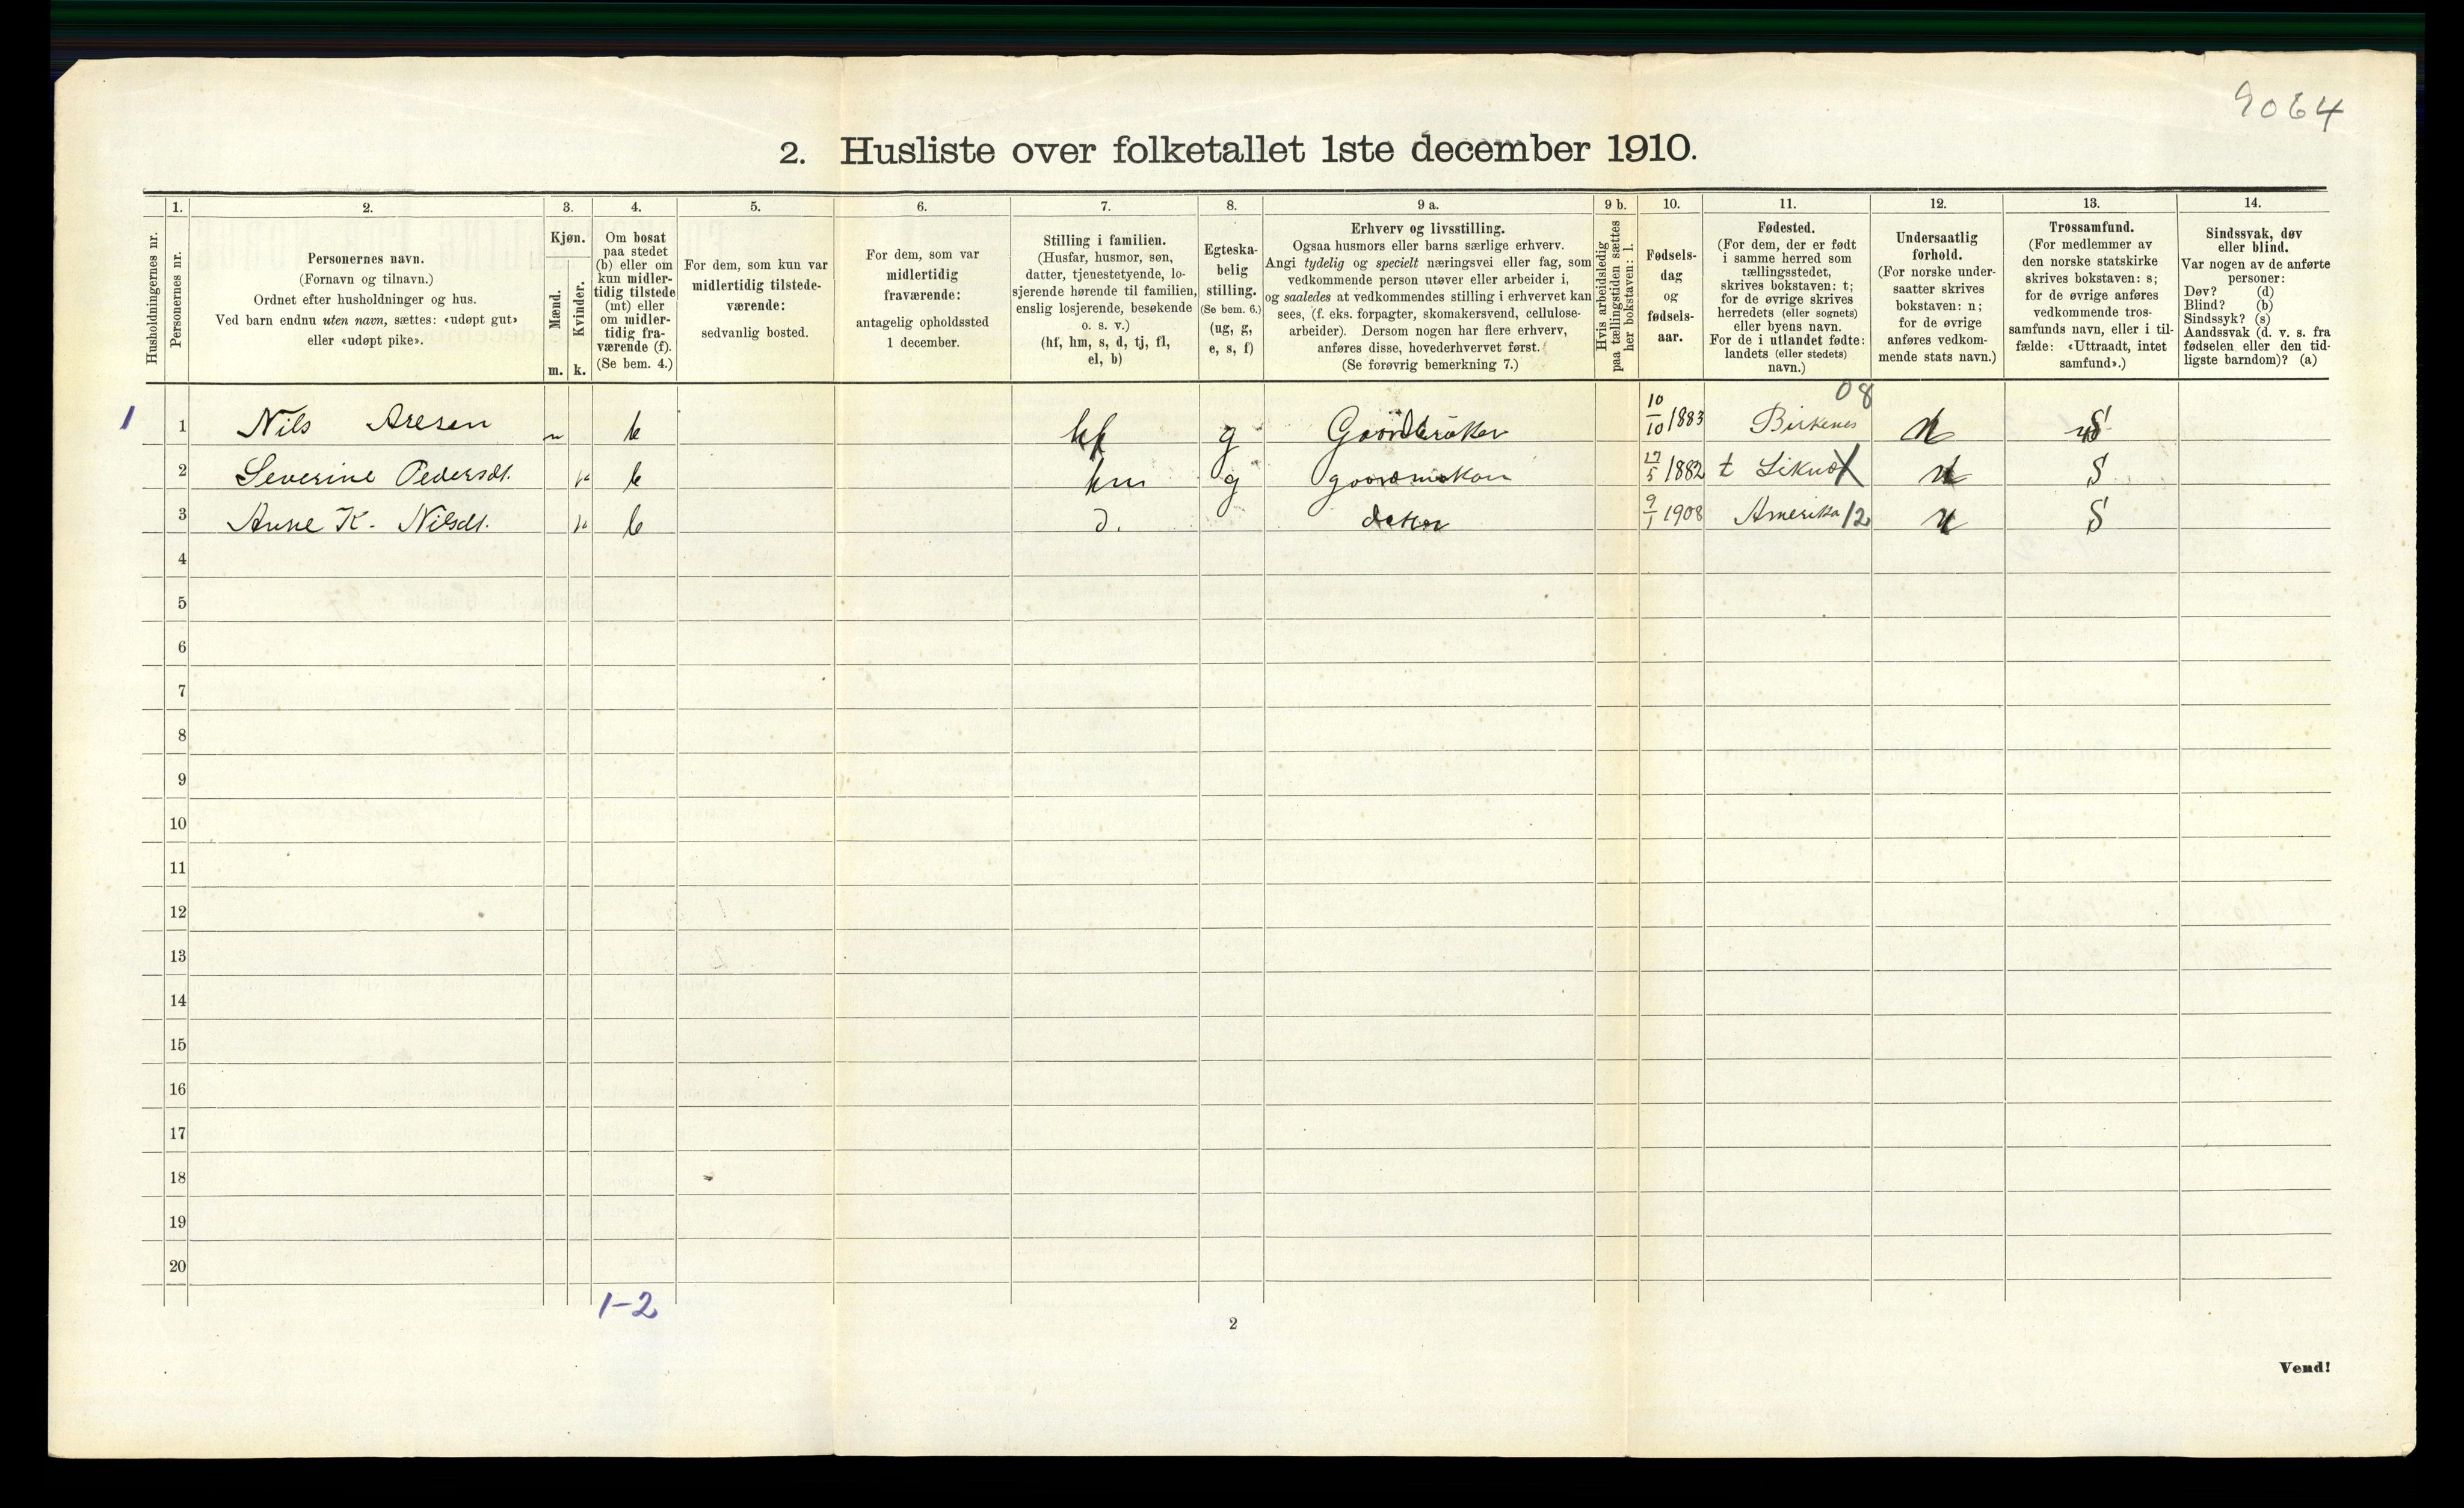 9064
2. Husliste over folketallet 1ste december 1910.
Husholdningernes nr.
1.
Personernes nr.
2.
Personernes navn.
(Fornavn og tilnavn.)
Ordnet efter husholdninger og hus.
Ved barn endnu uten navn, sættes: «udøpt gut»
eller «udøpt pike».
3.
Kjøn.
Mænd.
Kvinder.
m. k.
4.
Om bosat
paa stedet
(b) eller om
kun midler-
tidig tilstede
(mt) eller
om midler-
tidig fra-
værende (f).
(Se bem. 4.)
5.
For dem, som kun var
midlertidig tilstede-
værende:
sedvanlig bosted.
6.
For dem, som var
midlertidig
fraværende:
antagelig opholdssted
1 december.
7.
Stilling i familien.
(Husfar, husmor, søn,
datter, tjenestetyende, lo-
sjerende hørende til familien,
enslig losjerende, besøkende
o. s. v.)
(hf, hm, s, d, tj, fl,
el, b)
8.
Egteska-
belig
stilling.
(Se bem. 6.)
(ug, g,
e, s, f)
9 a.
Erhverv og livsstilling.
Ogsaa husmors eller barns særlige erhverv.
Angi tydelig og specielt næringsvei eller fag, som
vedkommende person utøver eller arbeider i,
og saaledes at vedkommendes stilling i erhvervet kan
sees, (f. eks. forpagter, skomakersvend, cellulose-
arbeider). Dersom nogen har flere erhverv,
anføres disse, hovederhvervet først.
(Se forøvrig bemerkning 7.)
9 b.
Hvis arbeidsledig
paa tællingstiden sættes
her bokstaven: l.
10.
Fødsels-
dag
og
fødsels-
aar.
11.
Fødested.
(For dem, der er født
i samme herred som
tællingsstedet,
skrives bokstaven: t;
for de øvrige skrives
herredets (eller sognets)
eller byens navn.
For de i utlandet fødte:
landets (eller stedets)
navn.)
12.
Undersaatlig
forhold.
(For norske under-
saatter skrives
bokstaven: n;
for de øvrige
anføres vedkom-
mende stats navn.)
13.
Trossamfund.
(For medlemmer av
den norske statskirke
skrives bokstaven: s;
for de øvrige anføres
vedkommende tros-
samfunds navn, eller i til-
fælde: «Uttraadt, intet
samfund».)
14.
Sindssvak, døv
eller blind.
Var nogen av de anførte
personer:
Døv? (d)
Blind? (b)
Sindssyk? (s)
Aandssvak (d. v. s. fra
fødselen eller den tid-
ligste barndom)? (a)
08
1 1 Nils Aresen m b hf g Gaardbruker 10/10 1883 Birkenes n S
2 Severine Pedersdt. k b hm g 17/5 1882 t X n S
3 Anne K. Nilsdt. k b d. 9/1 1908 Amerika 12 n S
4
5
6
7
8
9
10
11
12
13
14
15
16
17
18
19
20
1-2
2
Vend!